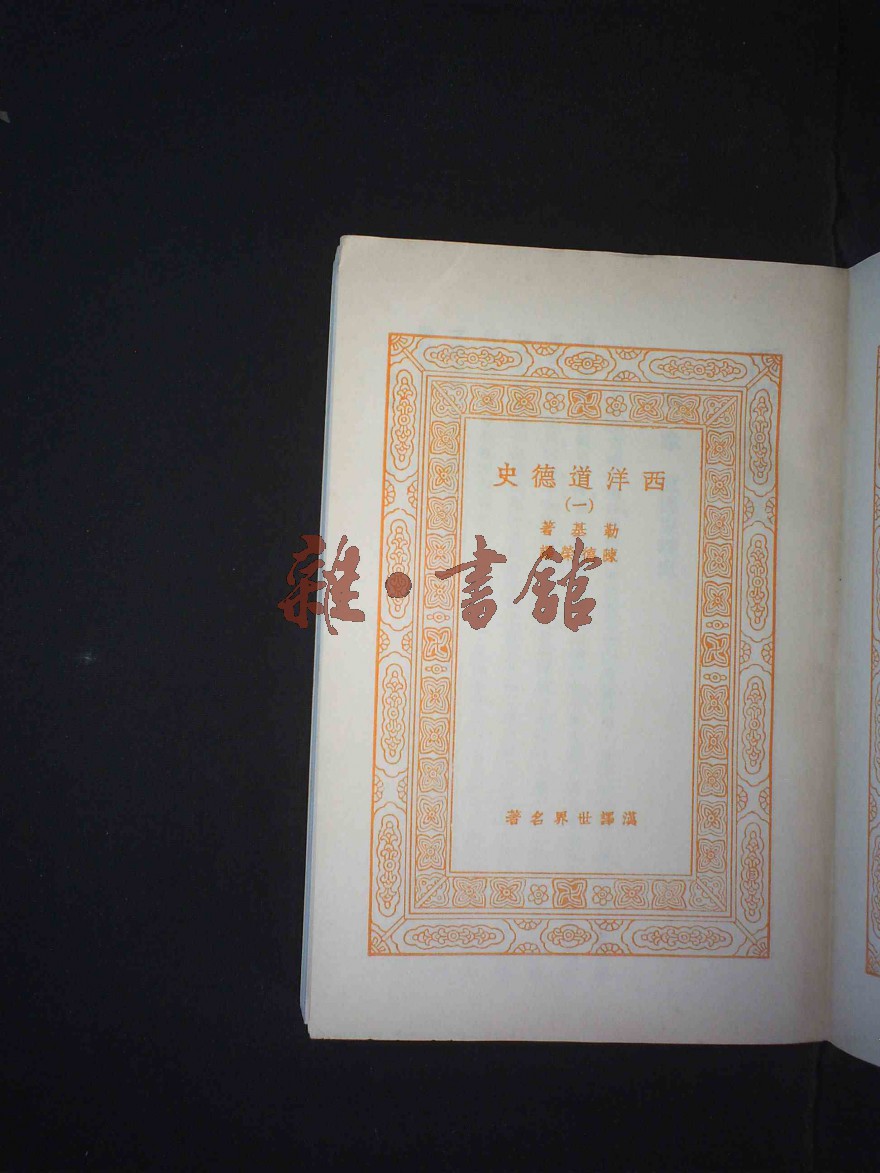 西洋道德史
(一)
勒基著
陳德榮譯
漢譯世界名著
雜·書館